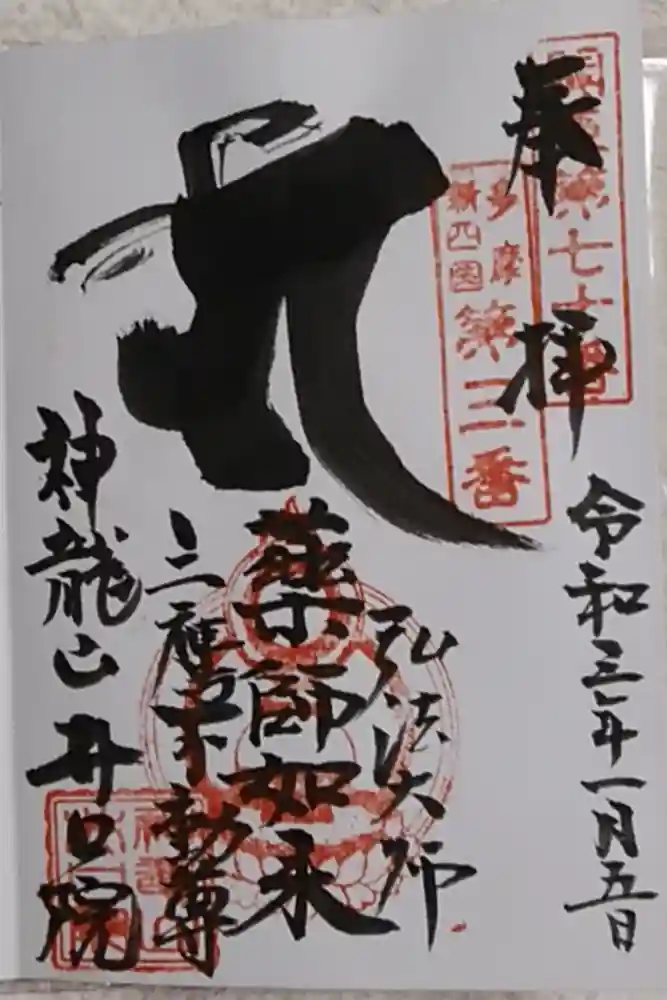 奉拝
令和三年一月五日
多摩
新四国
第三番
弘法大師
薬師如来
三種
不動尊
神龍山井口院